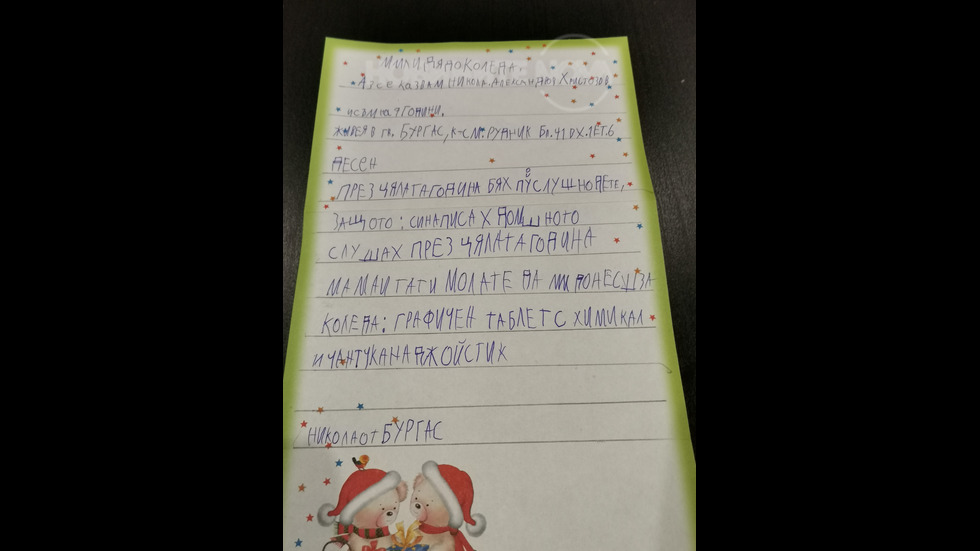 МИЛИ ДЯДО КОЛЕДА,
АЗ СЕ КАЗВАМ НИКОЛА АЛЕКСАНДРОВ ХРИСТОЗОВ
И СЪМ НА 9 ГОДИНИ.
ЖИВЕЯ В ГР. БУРГАС, К-С М. РУДНИК БЛ. 41 ВХ. 1 ЕТ. 6
ДЕСЕН
ПРЕЗ ЦЯЛАТА ГОДИНА БЯХ ПОСЛУШНО ДЕТЕ,
ЗАЩОТО: СИ НАПИСАХ ДОМШНОТО
СЛУШАХ ПРЕЗ ЦЯЛАТА ГОДИНА
МАМА И ТАТИ МОЛАТЕ ДА МИ ДОНЕСШ ЗА
КОЛЕДА: ГРАФИЧЕН ТАБЛЕТ С ХИМИКАЛ
И ЧАНТУКА НА ДЖОЙСТИК
НИКОЛА ОТ БУРГАС